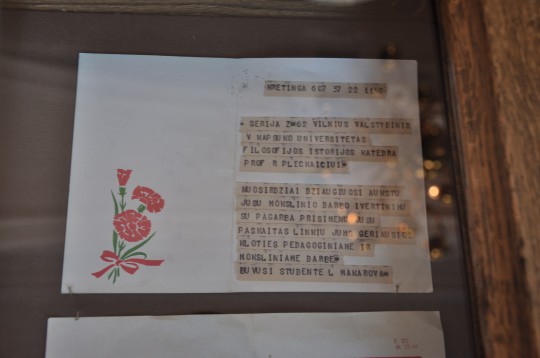 KRETINGA 607 37 22 1110
SERIJA Z#62 VILNIUS VALSTYBINIS
V KAPSUKO UNIVERSITETAS
FILOSOFIJOS ISTORIJOS KATEDRA
PROF R PLECKAICIUI=
NUOSIRDZIAI DZIAUGIUOSI AUKSTU
JUSU MOKSLINIO DARBO IVERTINIMU
SU PAGARBA PRISIMENU JUSU
PASKAITAS LINKIU JUMS GERIAUSIOS
KLOTIES PEDAGOGINIAME IR
MOKSLINIAME DARBE=
BUVUSI STUDENTE L MAKAROVA=